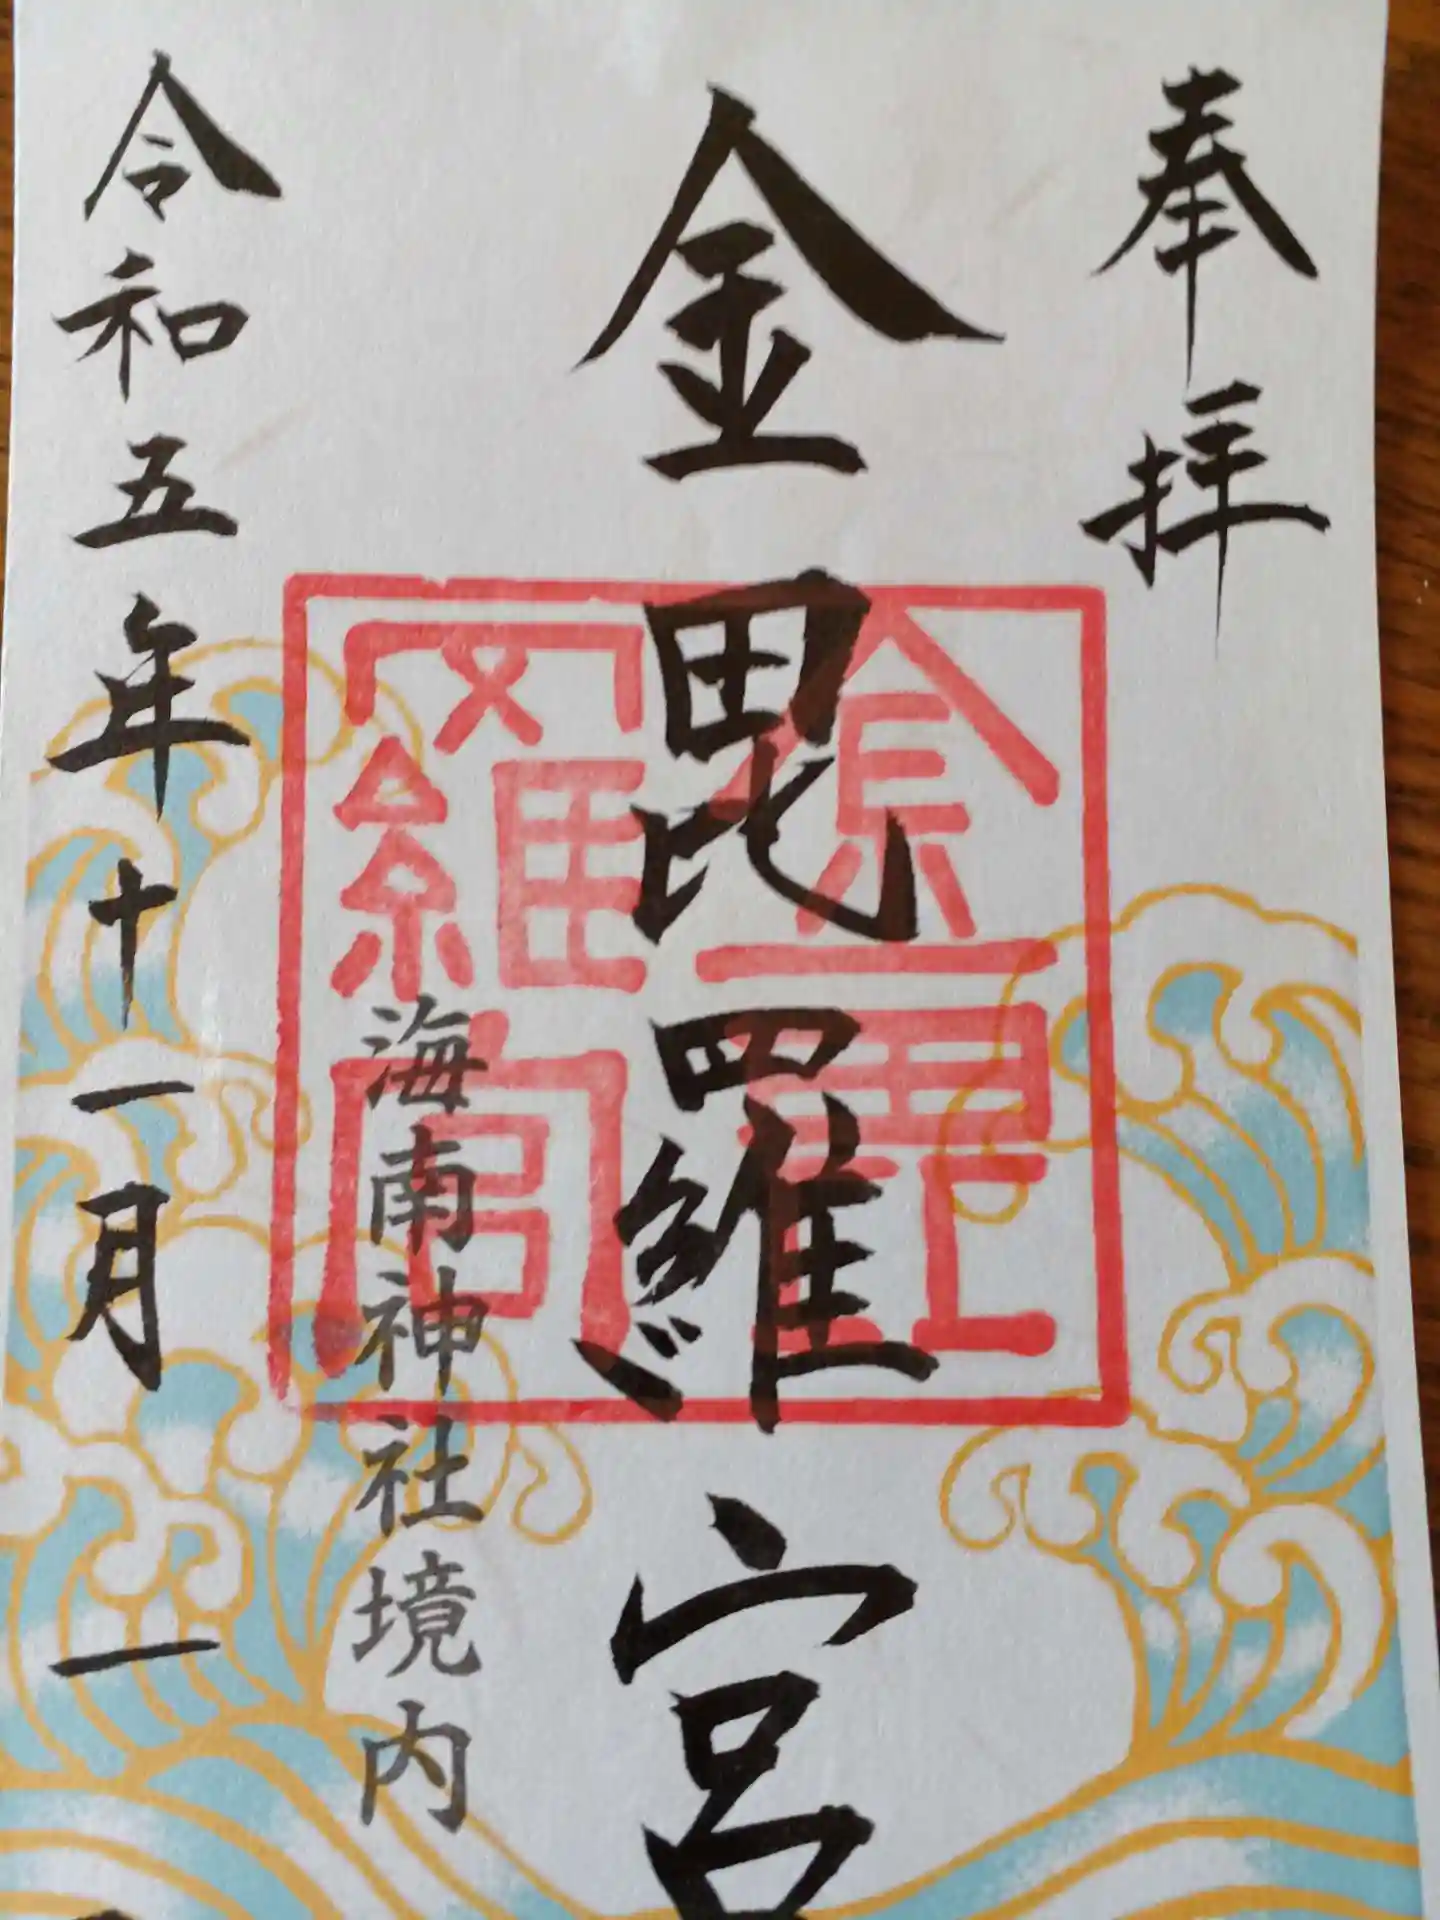 奉拝
金毘羅宮
金毘羅宮
海南神社境内
令和五年十一月一